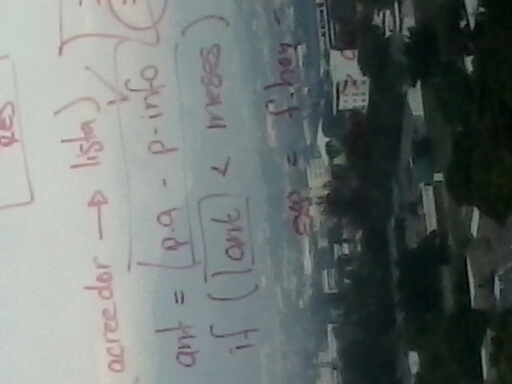 res
acreedor → lista)
ant = p.a - p.info
if (ant < meses)
= f.hoy -